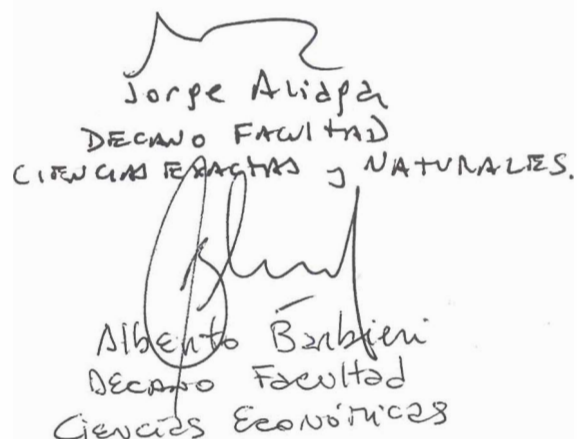 Jorge Aliaga
DECANO FACULTAD
CIENCIAS EXACTAS y NATURALES.
Alberto Barbieri
DECANO Facultad
Ciencias Económicas